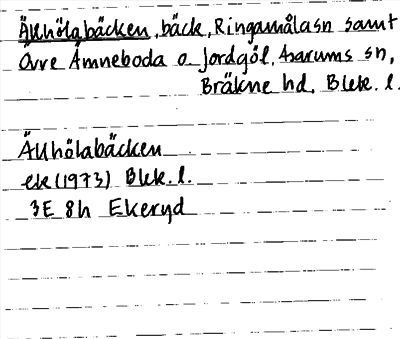 Älhölabäcken, bäck, Ringamålasn samt
Övre Åmneboda o Jordgöl, Asarums sn,
Bräkne hd, Blek. l.
Älhölabäcken
ek (1973) Blek. l.
3E 8h Ekeryd